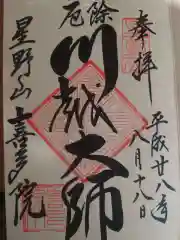 奉拝
平成廿八年
八月十八日
厄除
川越大師
星野山
喜多院